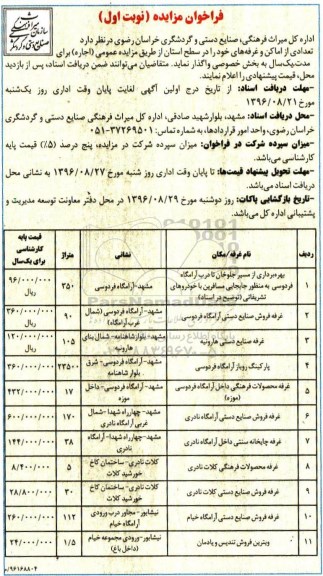 فراخوان مزایده (نوبت اول)
اداره کل میراث فرهنگی، صنایع دستی و گردشگری خراسان رضوی در نظر دارد
تعدادی از اماکن و غرفه‌های خود را در سطح استان از طریق مزایده عمومی (اجاره) برای
مدت یک‌سال به بخش خصوصی واگذار نماید. متقاضیان می‌توانند ضمن دریافت اسناد، پس از بازدید
محل، قیمت پیشنهادی را اعلام نمایند.
-مهلت دریافت اسناد: از تاریخ درج اولین آگهی لغایت پایان وقت اداری روز یک‌شنبه
مورخ ۱۳۹۶/۰۸/۲۱
-محل دریافت اسناد: مشهد، بلوارشهید صادقی، اداره کل میراث فرهنگی صنایع دستی و گردشگری
خراسان رضوی، واحد امور قراردادها، به شماره تماس: ۳۷۲۶۹۵۰۱-۰۵۱
-میزان سپرده شرکت در فراخوان: میزان سپرده شرکت در مزایده، پنج درصد (۵٪) قیمت پایه
کارشناسی می‌باشد.
-مهلت تحویل پیشنهاد قیمت‌ها: تا پایان وقت اداری روز شنبه مورخ ۱۳۹۶/۰۸/۲۷ به نشانی محل
دریافت اسناد می‌باشد.
-تاریخ بازگشایی پاکات: روز دوشنبه مورخ ۱۳۹۶/۰۸/۲۹ در محل دفتر معاونت توسعه مدیریت و
پشتیبانی اداره کل می‌باشد.
ردیف نام غرفه/مکان نشانی متراژ قیمت پایه کارشناسی برای یک‌سال
۱ بهره‌برداری از مسیر جلوخان تا درب آرامگاه فردوسی به منظور جابجایی مسافرین با خودروهای تشریفاتی (توضیح در اسناد) مشهد-آرامگاه فردوسی ۳۵۰ ۹۶/۰۰۰/۰۰۰ ریال
۲ غرفه فروش صنایع دستی آرامگاه فردوسی مشهد- آرامگاه فردوسی (شمال غرب آرامگاه) ۹۰ ۳۶۰/۰۰۰/۰۰۰ ریال
۳ غرفه صنایع دستی هارونیه مشهد-بلوارشاهنامه- شمال بنای هارونیه ۱۰۵ ۱۲۰/۰۰۰/۰۰۰ ریال
۴ پارکینگ روباز آرامگاه فردوسی مشهد-آرامگاه فردوسی- شرق بلوار شاهنامه ۲۳۵۰۰ ۳۶۰/۰۰۰/۰۰۰
۵ غرفه محصولات فرهنگی داخل آرامگاه فردوسی (موزه) مشهد-آرامگاه فردوسی-داخل موزه ۱۷ ۴۳۲/۰۰۰/۰۰۰
۶ غرفه فروش صنایع دستی آرامگاه نادری مشهد-چهارراه شهدا-شمال غربی آرامگاه نادری ۱۷۰ ۶۰۰/۰۰۰/۰۰۰
۷ غرفه چایخانه سنتی داخل آرامگاه نادری مشهد-چهارراه شهدا- آرامگاه نادری ۳۸ ۱۴۴/۰۰۰/۰۰۰
۸ غرفه محصولات فرهنگی کلات نادری کلات نادری- ساختمان کاخ خورشید کلات ۵ ۸/۴۰۰/۰۰۰
۹ غرفه فروش صنایع دستی کلات نادری کلات نادری- ساختمان کاخ خورشید کلات ۳۰ ۲۸/۸۰۰/۰۰۰
۱۰ غرفه فروش صنایع دستی آرامگاه خیام نیشابور- مجاور درب ورودی آرامگاه خیام ۱۱۲ ۲۶۰/۰۰۰/۰۰۰
۱۱ ویترین فروش تندیس و یادمان نیشابور-ورودی مجموعه خیام (داخل باغ) ۱/۵ ۲۴/۰۰۰/۰۰۰
۹۶۱۶۸۸۰۴